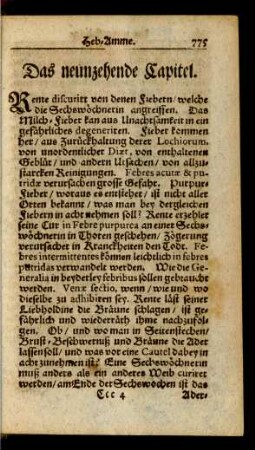 Heb-Amme. 775
Das neunzehende Capitel.
Rente discurirt von denen Fiebern/ welche
die Sechswöchnerin angreiffen. Das
Milch-Fieber kan aus Unachtsamkeit in ein
gefährliches degeneriren. Fieber kommen
her/ aus Zurückhaltung derer Lochiorum,
von unordentlicher Diæt, von enthaltenen
Geblüt/ und andern Ursachen/ von allzu-
starcken Reinigungen. Febres acutæ & pu-
tridæ verursachen grosse Gefahr. Purpur-
Fieber/ woraus es entstehet/ ist nicht aller
Orten bekannt/ was man bey dergleichen
Fiebern in acht nehmen soll! Rente erzehlet
seine Cur in Febre purpurea an einer Sechs-
wöchnerin in Thoren geschehen/ Zögerung
verursachet in Kranckheiten den Tode. Fe-
bres intermittentes können leichtlich in febres
putridas verwandelt werden. Wie die Ge-
neralia in beyderley febribus sollen gebraucht
werden. Venæ sectio, wenn/ wie und wo
dieselbe zu adhibiren sey. Rente läst seiner
Liebholdine die Bräune schlagen/ ist ge-
fährlich und wiederräth ihme nachzufol-
gen. Ob/ und wo man in Seitenstechen/
Brust-Beschwernuß und Bräune die Ader
lassen soll/ und was vor eine Cautel dabey in
acht zunehmen ist. Eine Sechswöchnerin
muß anders als ein anderes Weib curiret
werden/ am Ende der Sechswochen ist das
Ccc 4 Ader-